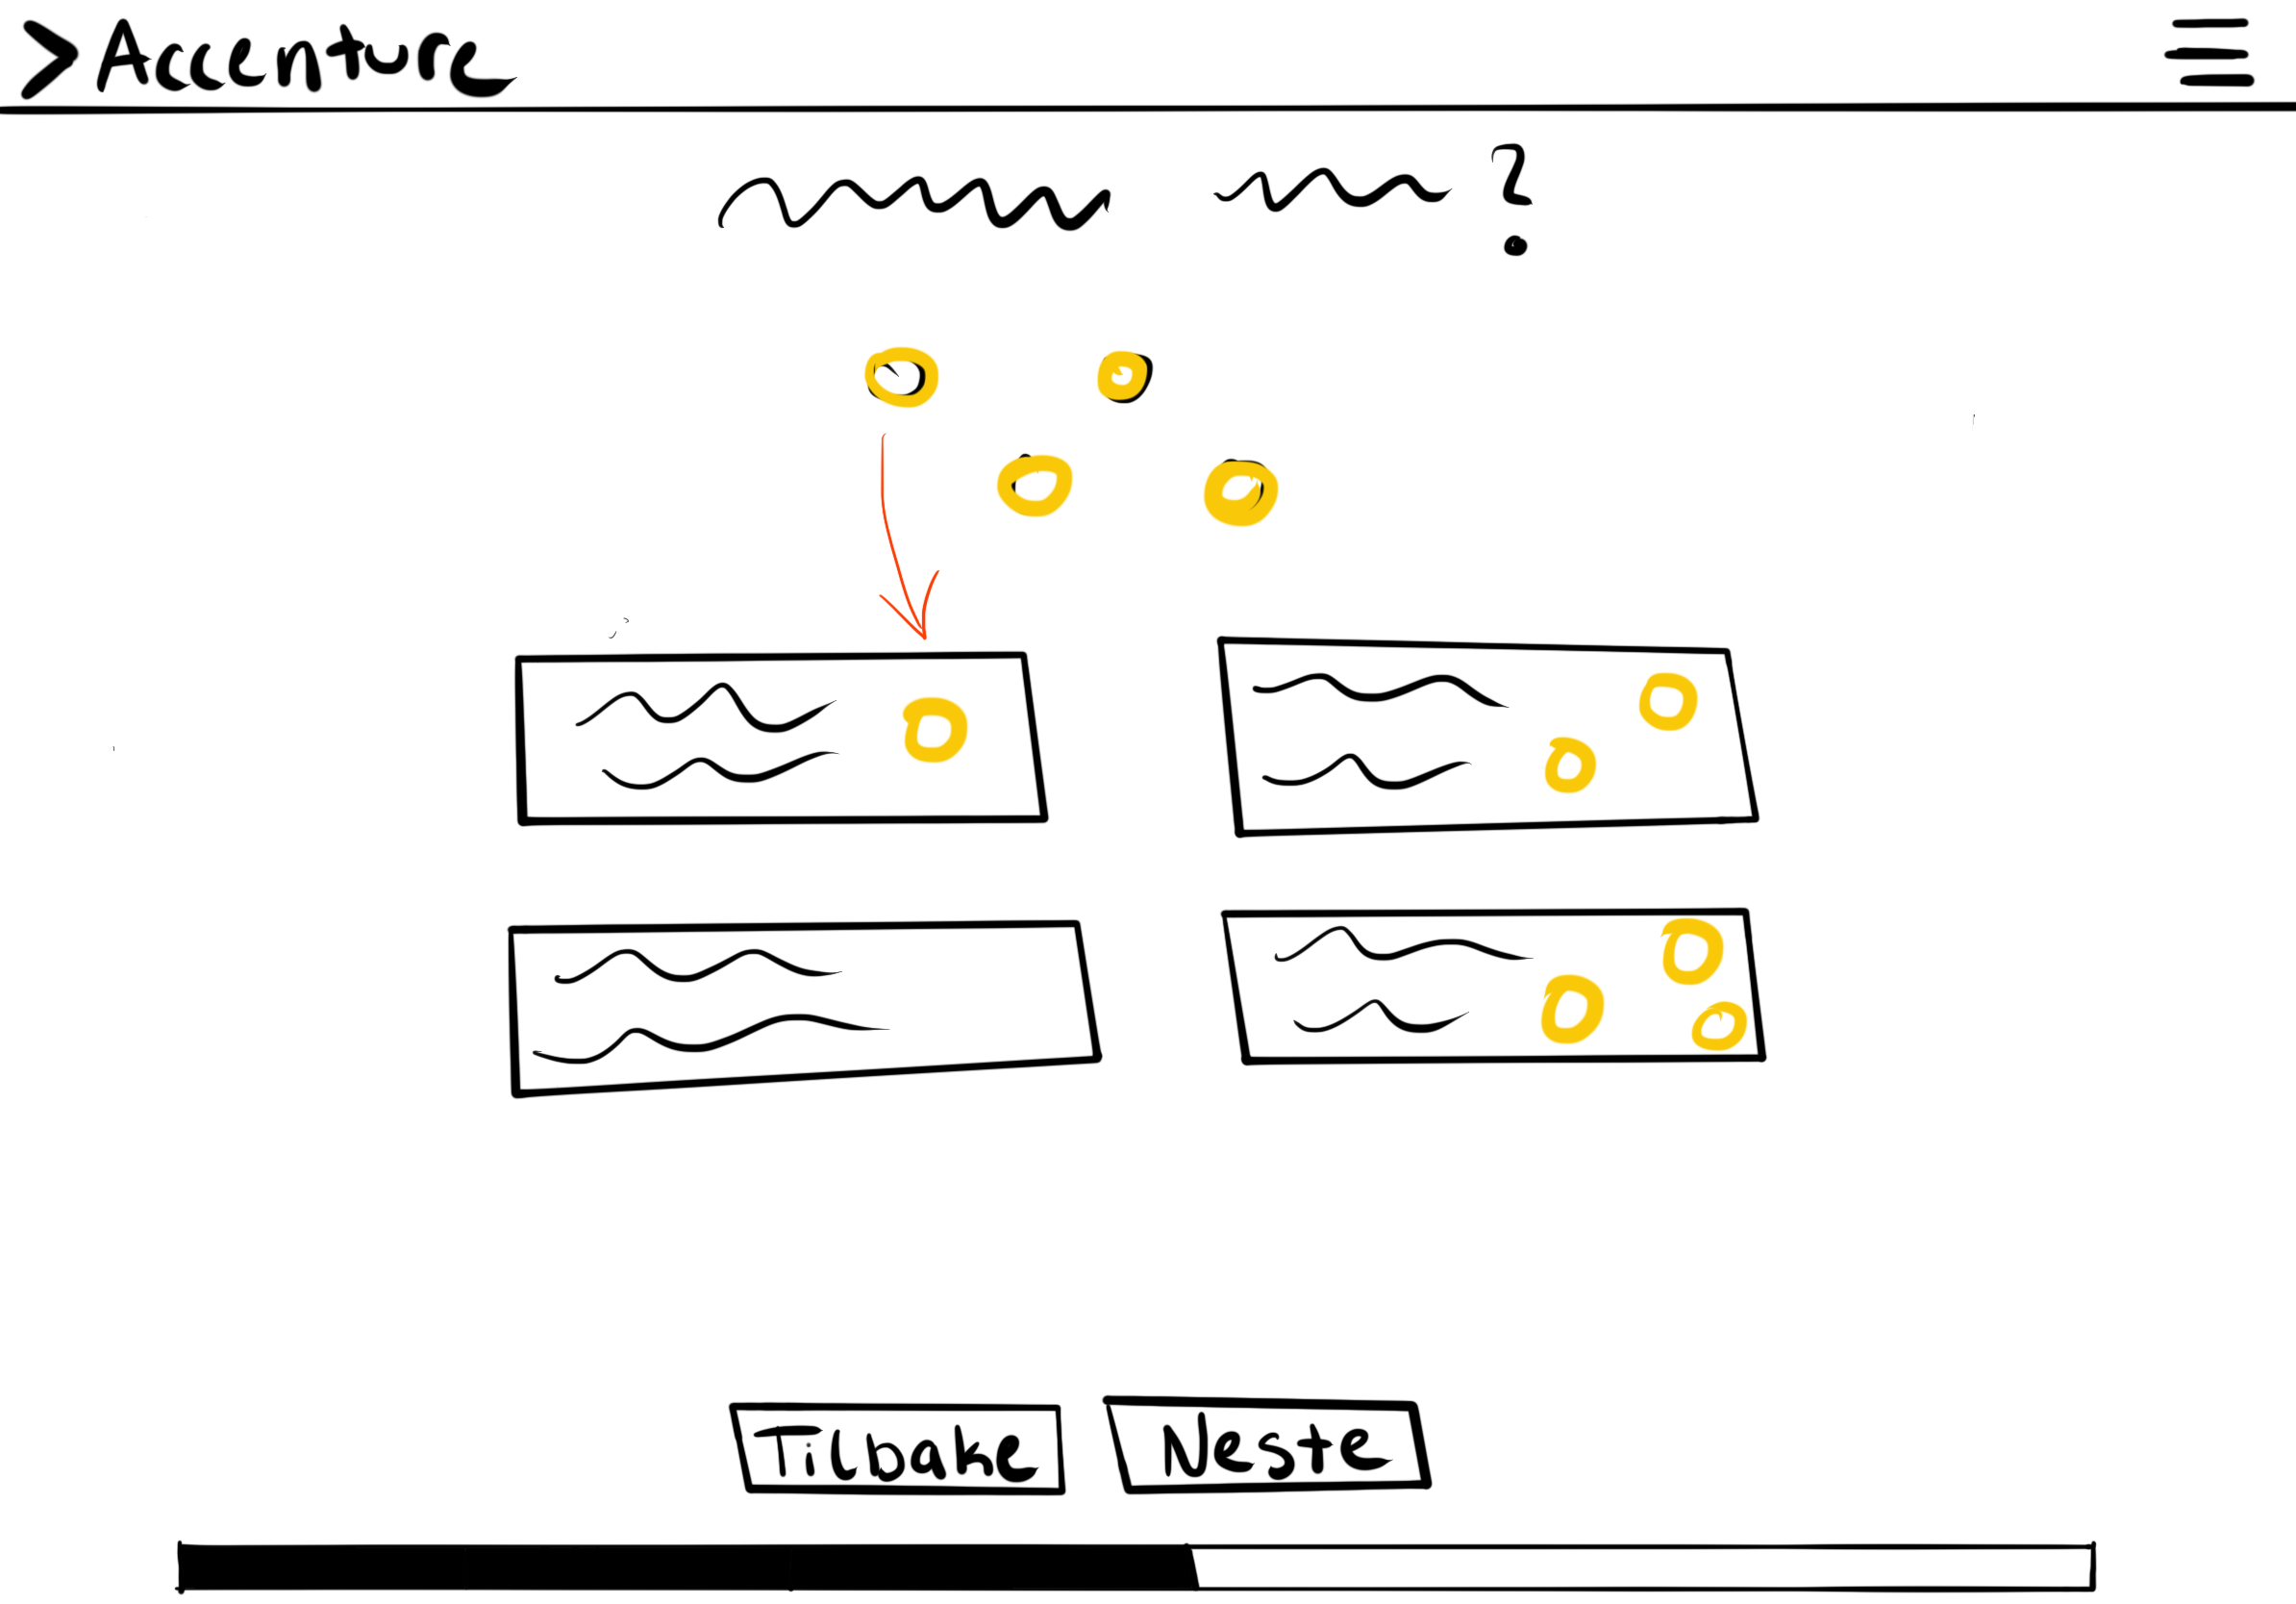 >Accenture
?
Tilbake
Neste